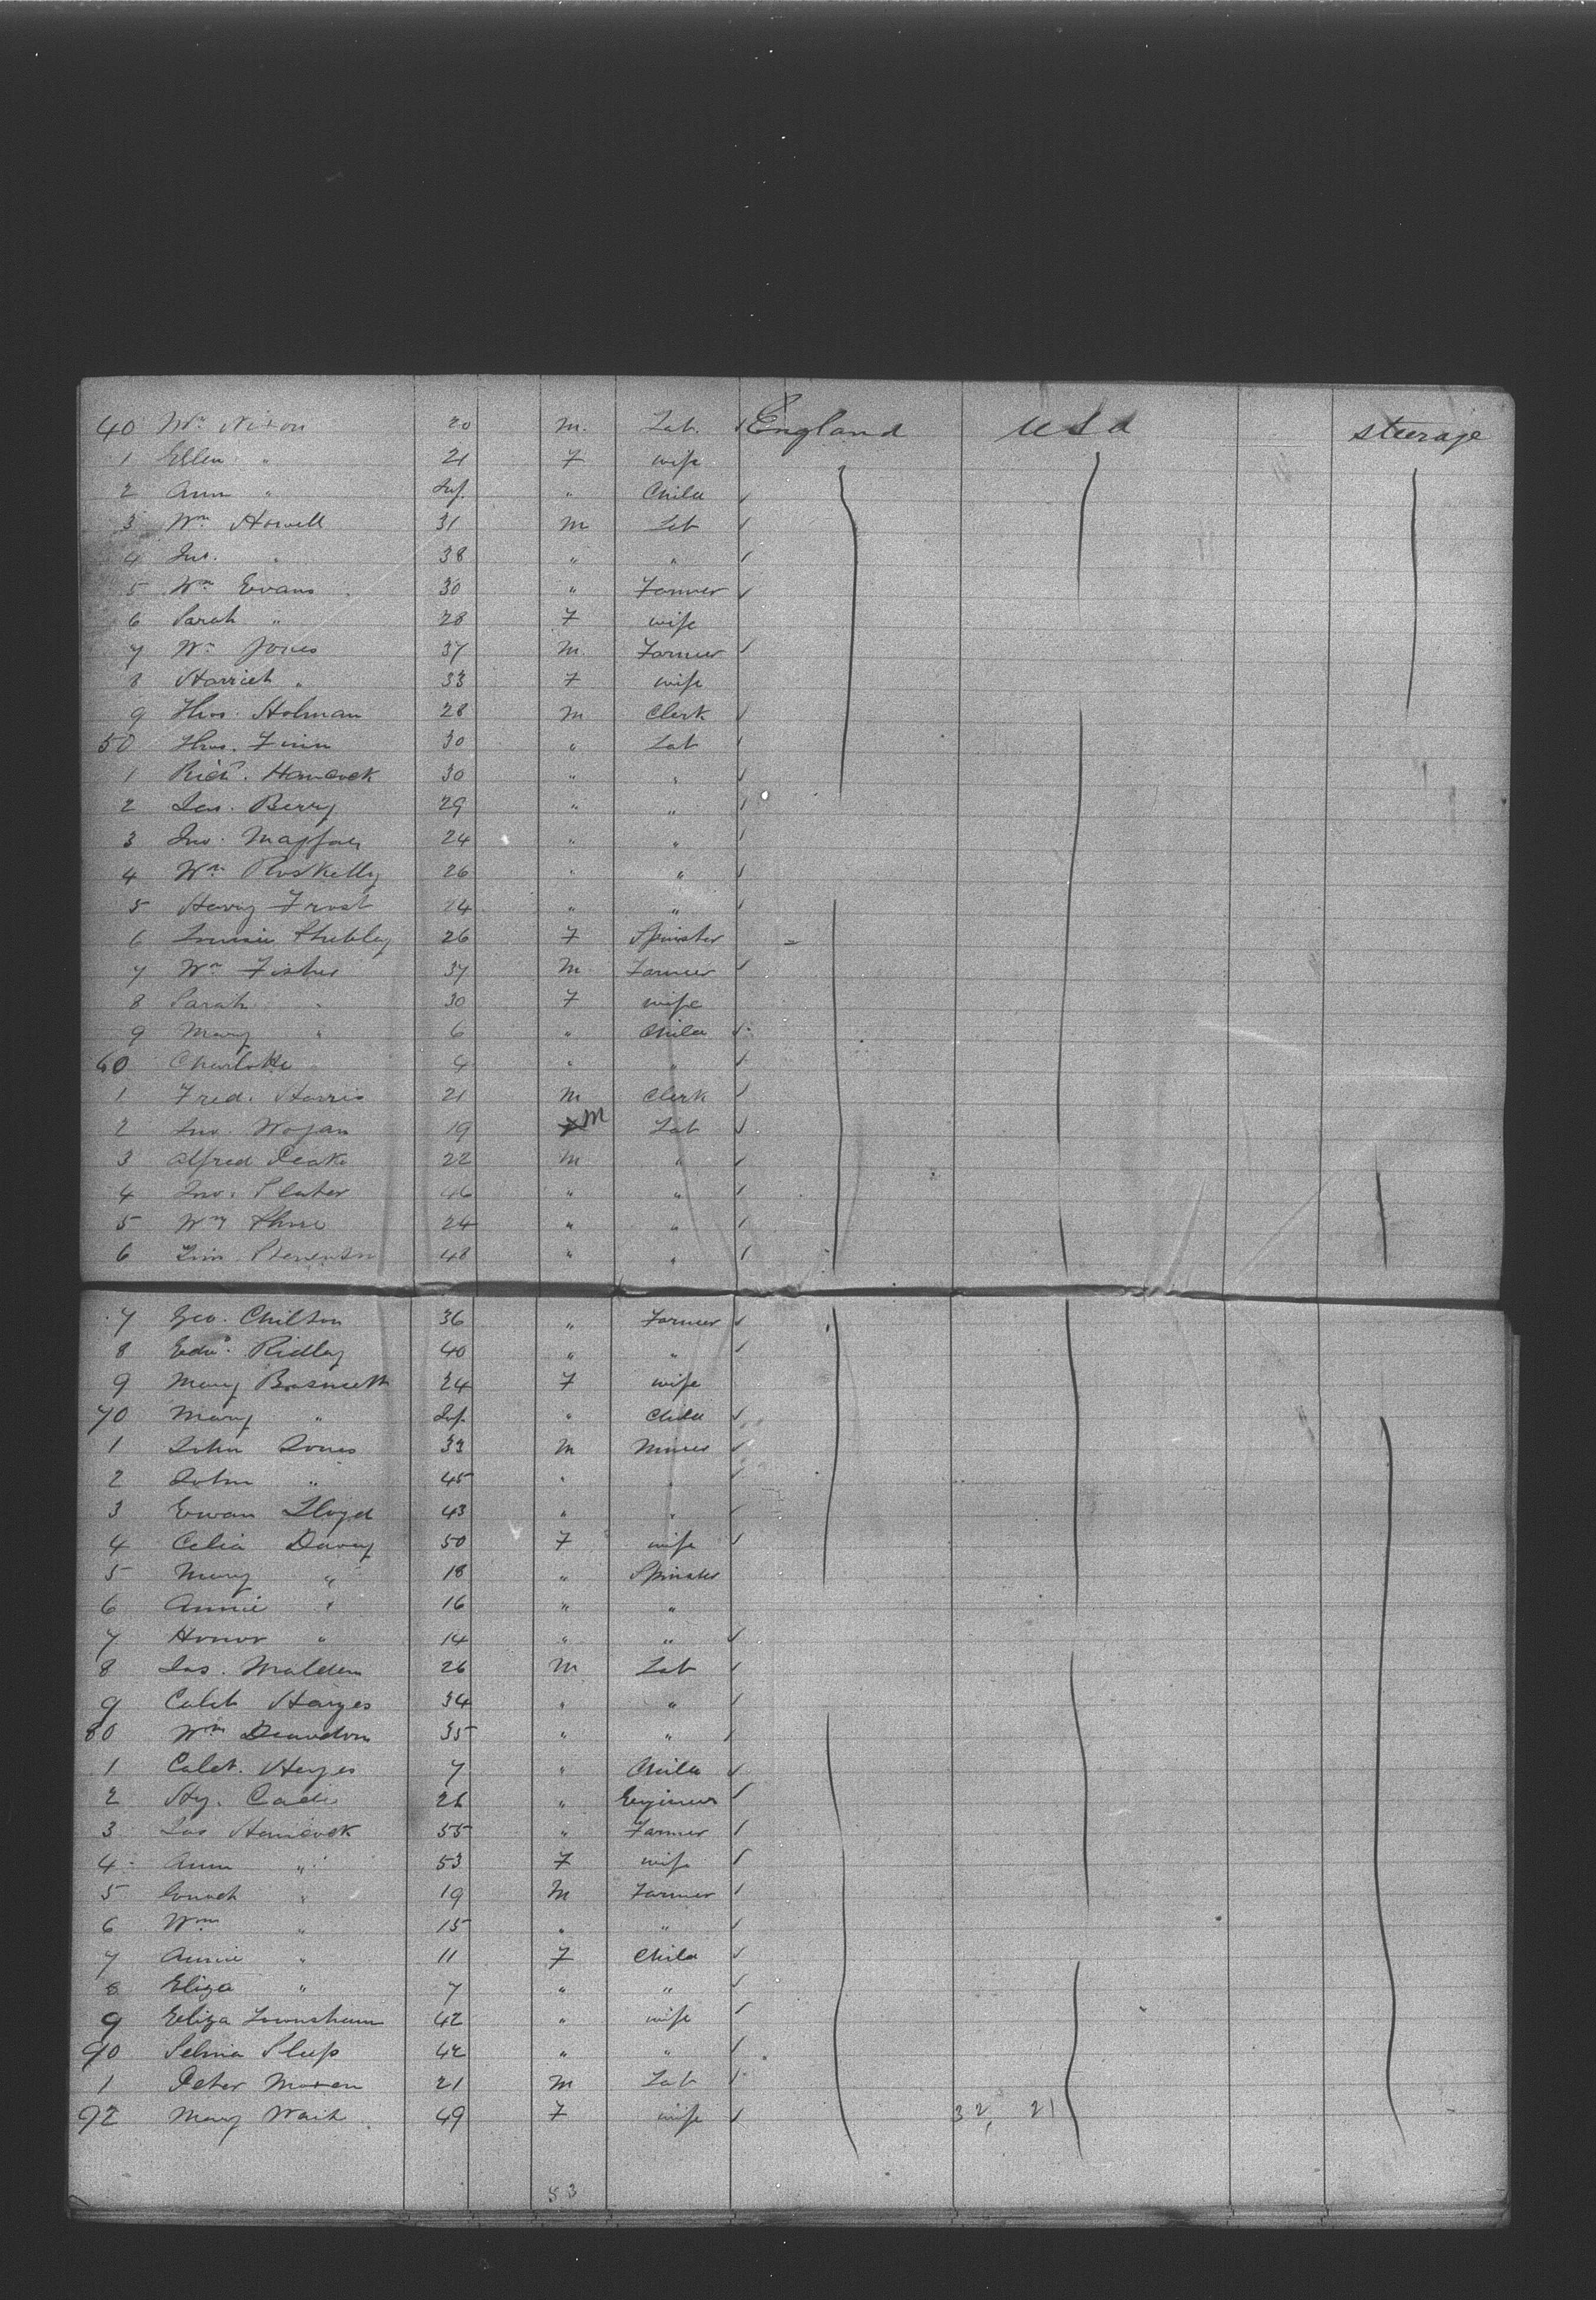 40 Wm Nixon 20 M. Lab. England USA steerage
1 Ellen " 21 F wife
2 Ann " Inf. " Child
3 Wm Howell 31 M Lab
4 Jno. " 38 " "
5 Wm Evans 30 " Farmer
6 Sarah " 28 F wife
7 Wm Jones 37 M. Farmer
8 Harriet " 33 F wife
9 Thos. Holman 28 M Clerk
50 Thos. Finn 30 " Lab
1 Richd. Hancock 30 " "
2 Jas. Berry 29 " "
3 Jno. 24 " "
4 Wm Roskelly 26 " "
5 Harry Frost 24 " "
6 26 F Spinster
7 Wm Fisher 37 M Farmer
8 Sarah " 30 F wife
9 Mary " 6 " Child
60 Charlotte " 4 " "
1 Fred. Harris 21 M Clerk
2 Jno. Wogan 19 M Lab
3 Alfred Peake 22 M "
4 Jno. Slater 46 " "
5 Wm 24 " "
6 Stevenson 48 " "
7 Geo. Chilton 36 " Farmer
8 Edwd. Ridley 40 " "
9 Mary Basnett 24 F wife
70 Mary " Inf. " Child
1 John Jones 33 M Miner
2 John " 45 " "
3 Evan Lloyd 43 " "
4 Celia Davey 50 F wife
5 Mary " 18 " Spinster
6 Annie " 16 " "
7 Honor " 14 " "
8 Jas. Malden 26 M Lab
9 Caleb Hayes 34 " "
80 Wm 35 " "
1 Caleb. Hayes 7 " Child
2 Hy. 26 " Engineer
3 Jas Hancock 55 " Farmer
4 Ann " 53 F wife
5 Enoch " 19 M Farmer
6 Wm " 15 " "
7 Annie " 11 F Child
8 Eliza " 7 " "
9 Eliza 42 " wife
90 Selina Sleep 42 " "
1 Peter Moren 21 M Lab
92 Mary Wait 49 F wife 32, 21
53